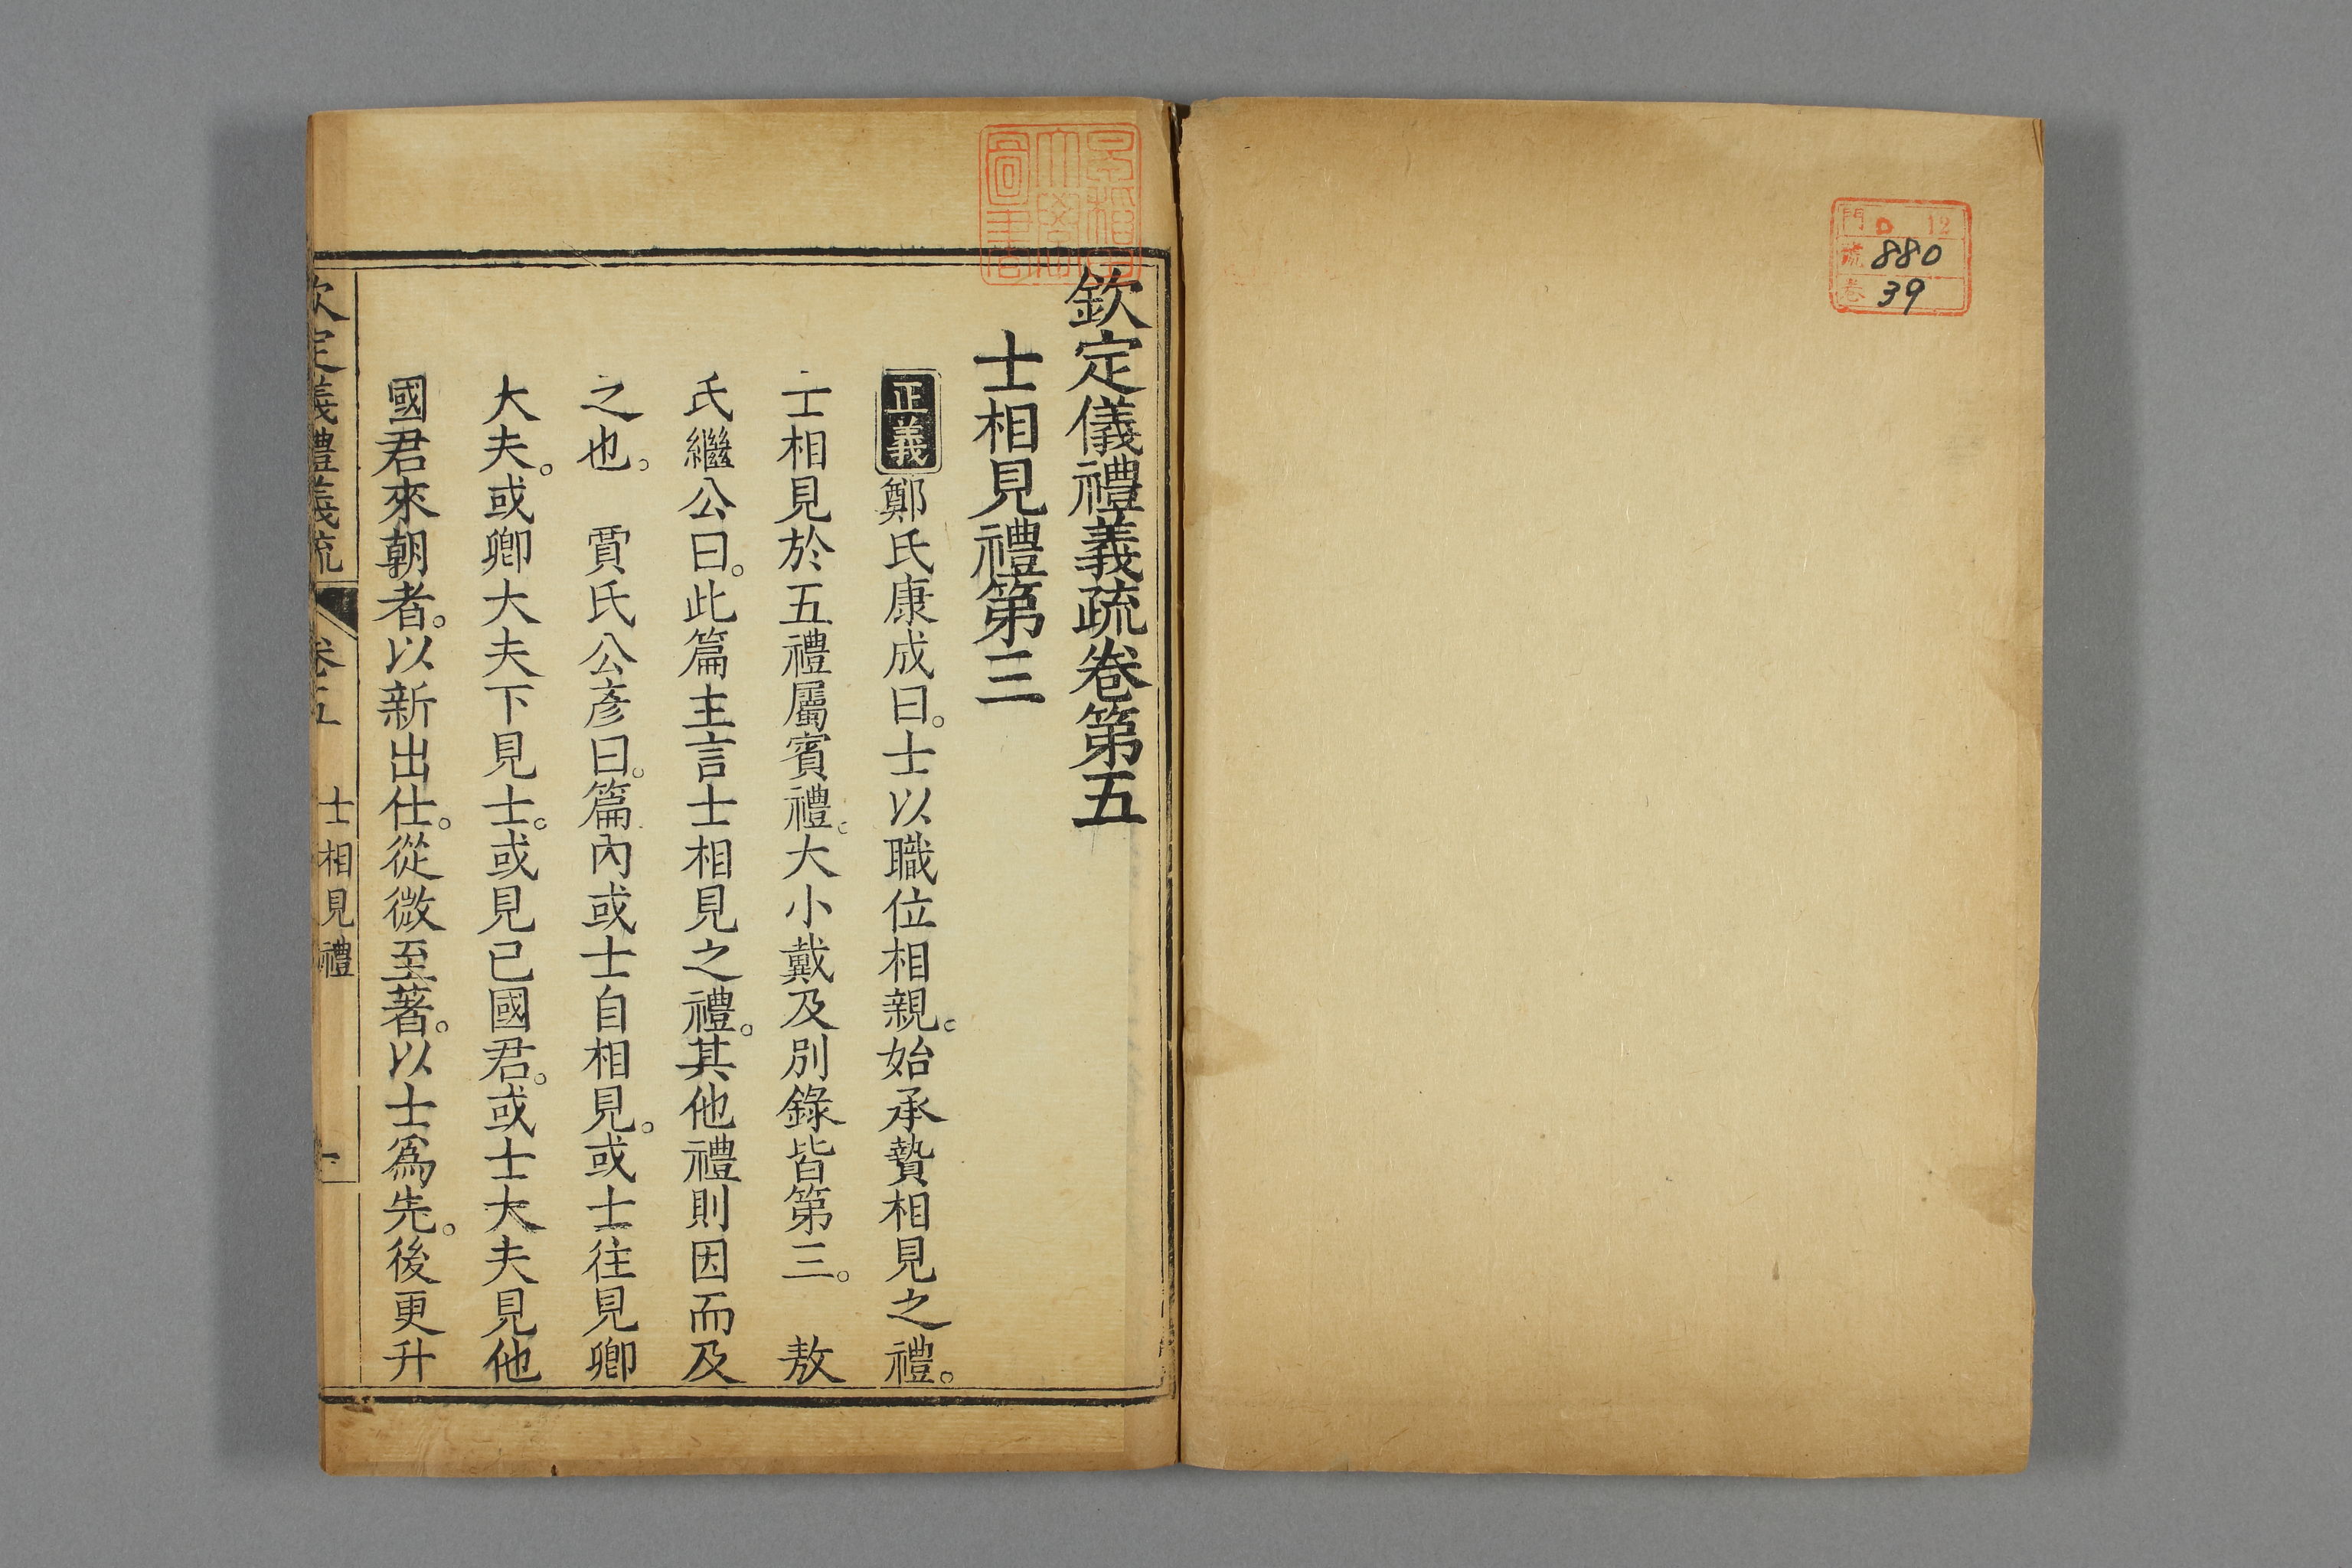 門 ロ 12
号 880
卷 39
早稲田
大學
圖書
欽定儀禮義疏卷第五
士相見禮第三
正義鄭氏康成曰。士以職位相親。始承贄相見之禮。
士相見於五禮屬賓禮。大小戴及別錄皆第三。　敖
氏繼公曰。此篇主言士相見之禮。其他禮則因而及
之也。　賈氏公彥曰。篇內或士自相見。或士往見卿
大夫。或卿大夫下見士。或見已國君。或士大夫見他
國君來朝者。以新出仕。從微至著。以士為先。後更升
欽定儀禮義疏　卷五　士相見禮　一